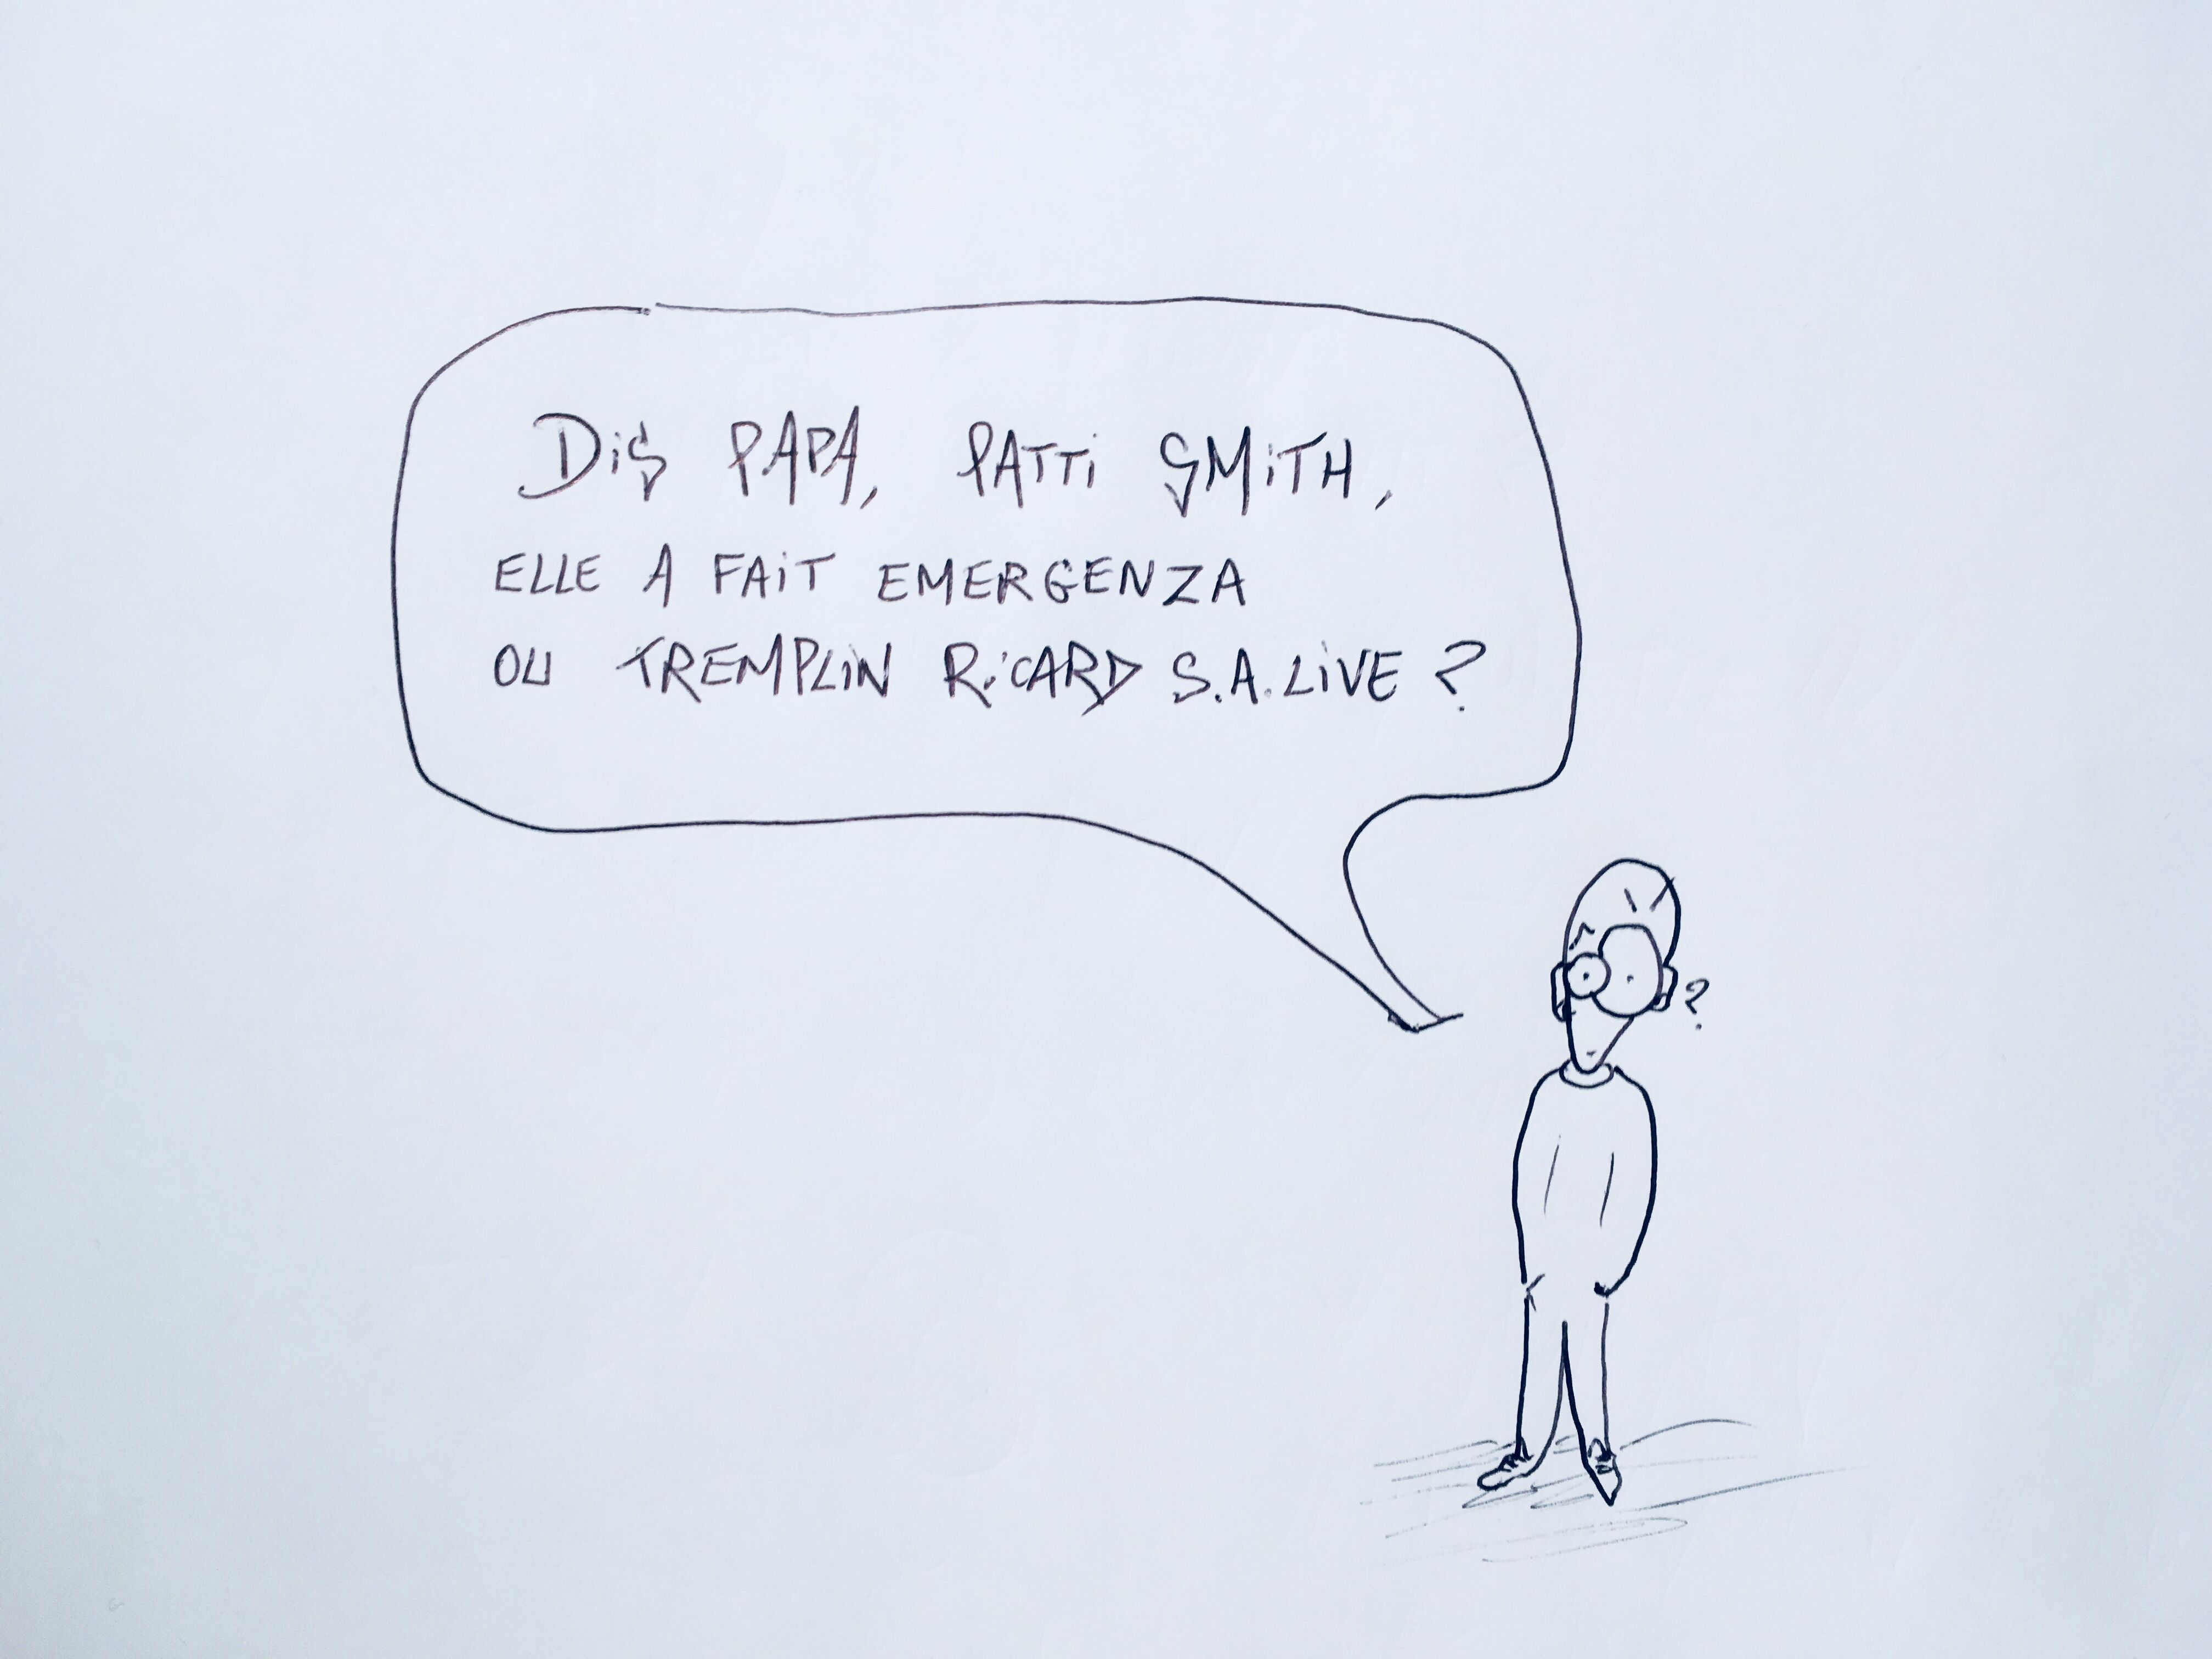 DiS PAPA, PATTi SMiTH,
ELLE A FAiT EMERGENZA
OU TREMPLiN RiCARD S.A. LiVE ?
?